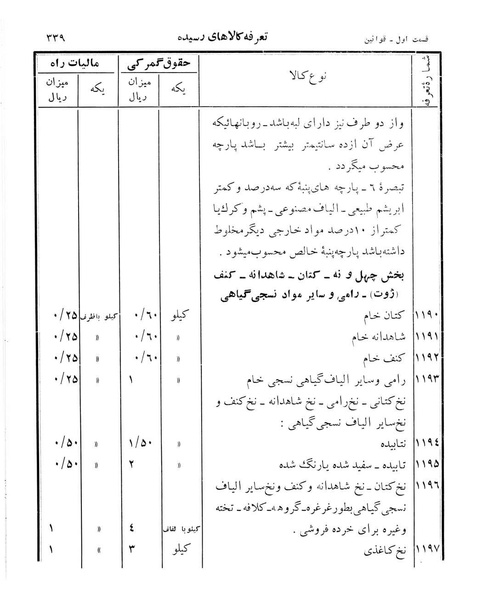 قسمت اول ـ قوانین تعرفه کالاهای رسیده ۳۳۹
شمارهٔ تعرفه نوع کالا حقوق گمرکی مالیات راه
یکه میزان ریال یکه میزان ریال
و از دو طرف نیز دارای لبه باشد ـ روبانهائیکه
عرض آن از ده سانتیمتر بیشتر باشد پارچه
محسوب میگردد .
تبصرهٔ ۶ ـ پارچه های پنبهٔ که سه درصد و کمتر
ابریشم طبیعی ـ الیاف مصنوعی ـ پشم و کرک یا
کمتر از ۱۰ درصد مواد خارجی دیگر مخلوط
داشته باشد پارچه پنبهٔ خالص محسوب میشود .
بخش چهل و نه ـ کتان ـ شاهدانه ـ کنف
(ژوت) ـ رامی و سایر مواد نسجی گیاهی
۱۱۹۰ کتان خام کیلو ۰/۶۰ کیلو باظرف ۰/۲۵
۱۱۹۱ شاهدانه خام » ۰/۶۰ » ۰/۲۵
۱۱۹۲ کنف خام » ۰/۶۰ » ۰/۲۵
۱۱۹۳ رامی و سایر الیاف گیاهی نسجی خام » ۱ » ۰/۲۵
نخ کتانی ـ نخ رامی ـ نخ شاهدانه ـ نخ کنف و
نخ سایر الیاف نسجی گیاهی :
۱۱۹٤ نتابیده » ۱/۵۰ » ۰/۵۰
۱۱۹۵ تابیده ـ سفید شده یا رنگ شده » ۲ » ۰/۵۰
۱۱۹۶ نخ کتان ـ نخ شاهدانه و کنف و نخ سایر الیاف
نسجی گیاهی بطور غرغره ـ گروهه ـ کلافه ـ تخته
و غیره برای خرده فروشی . کیلو با لفاف ٤ » ۱
۱۱۹۷ نخ کاغذی کیلو ۳ » ۱